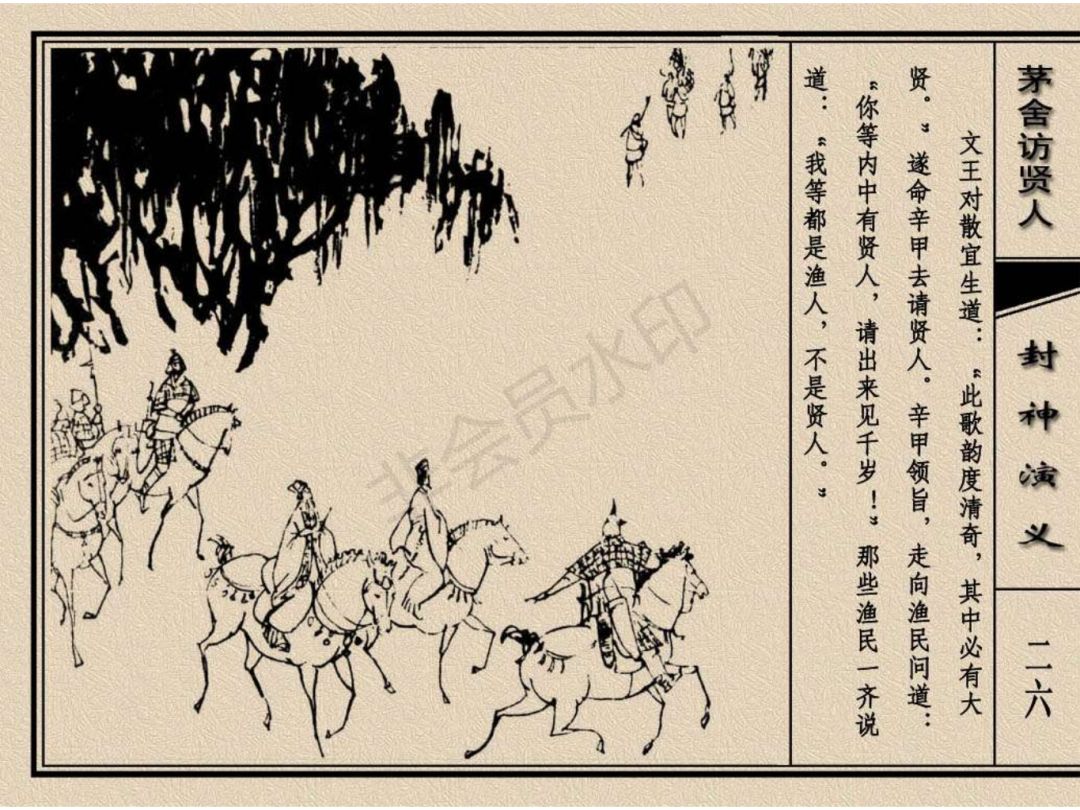 茅舍访贤人
封神演义
二六
文王对散宜生道：“此歌韵度清奇，其中必有大
贤。”遂命辛甲去请贤人。辛甲领旨，走向渔民问道：
“你等内中有贤人，请出来见千岁！”那些渔民一齐说
道：“我等都是渔人，不是贤人。”
非会员水印